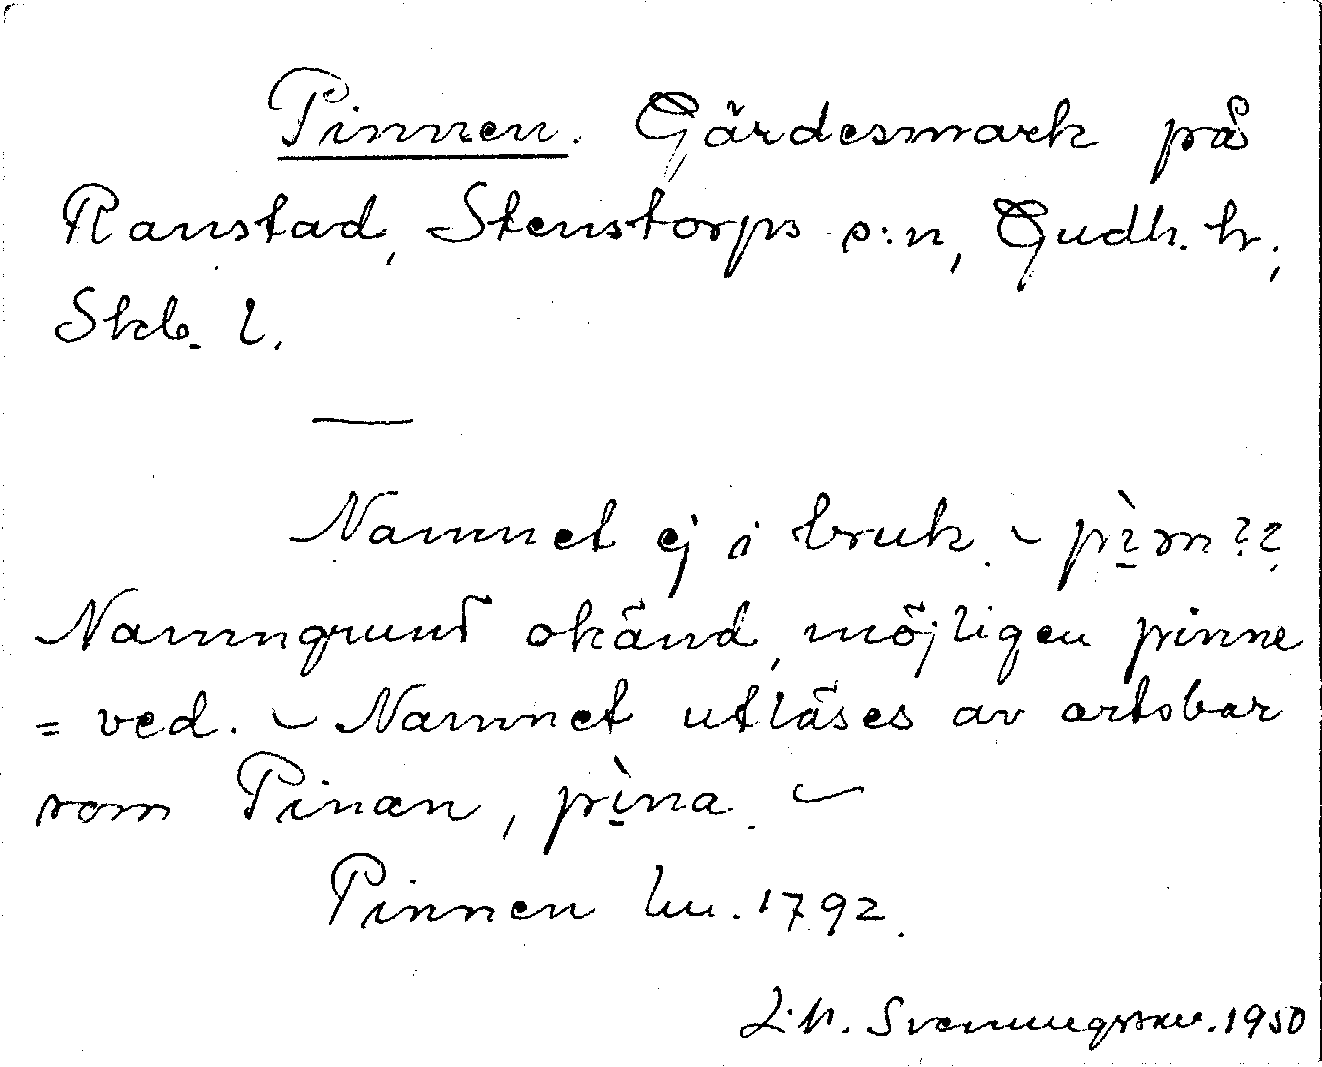 Pinnen. Gärdesmark på
Ranstad, Stenstorps s:n, Gudh. hr,
Skb. l.
—
Namnet ej i bruk. – pìnn??
Namngrund okänd, möjligen pinne
= ved. – Namnet utläses av ortsbor
som Pinan, pìna. –
Pinnen lm. 1792.
Svenungsson. 1950